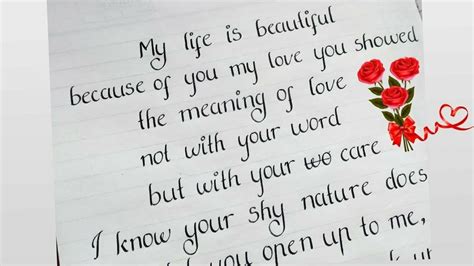 My life is beautiful
because of you my love you showed
the meaning of love
not with your word
but with your wo care
I know your shy nature does
you open up to me,